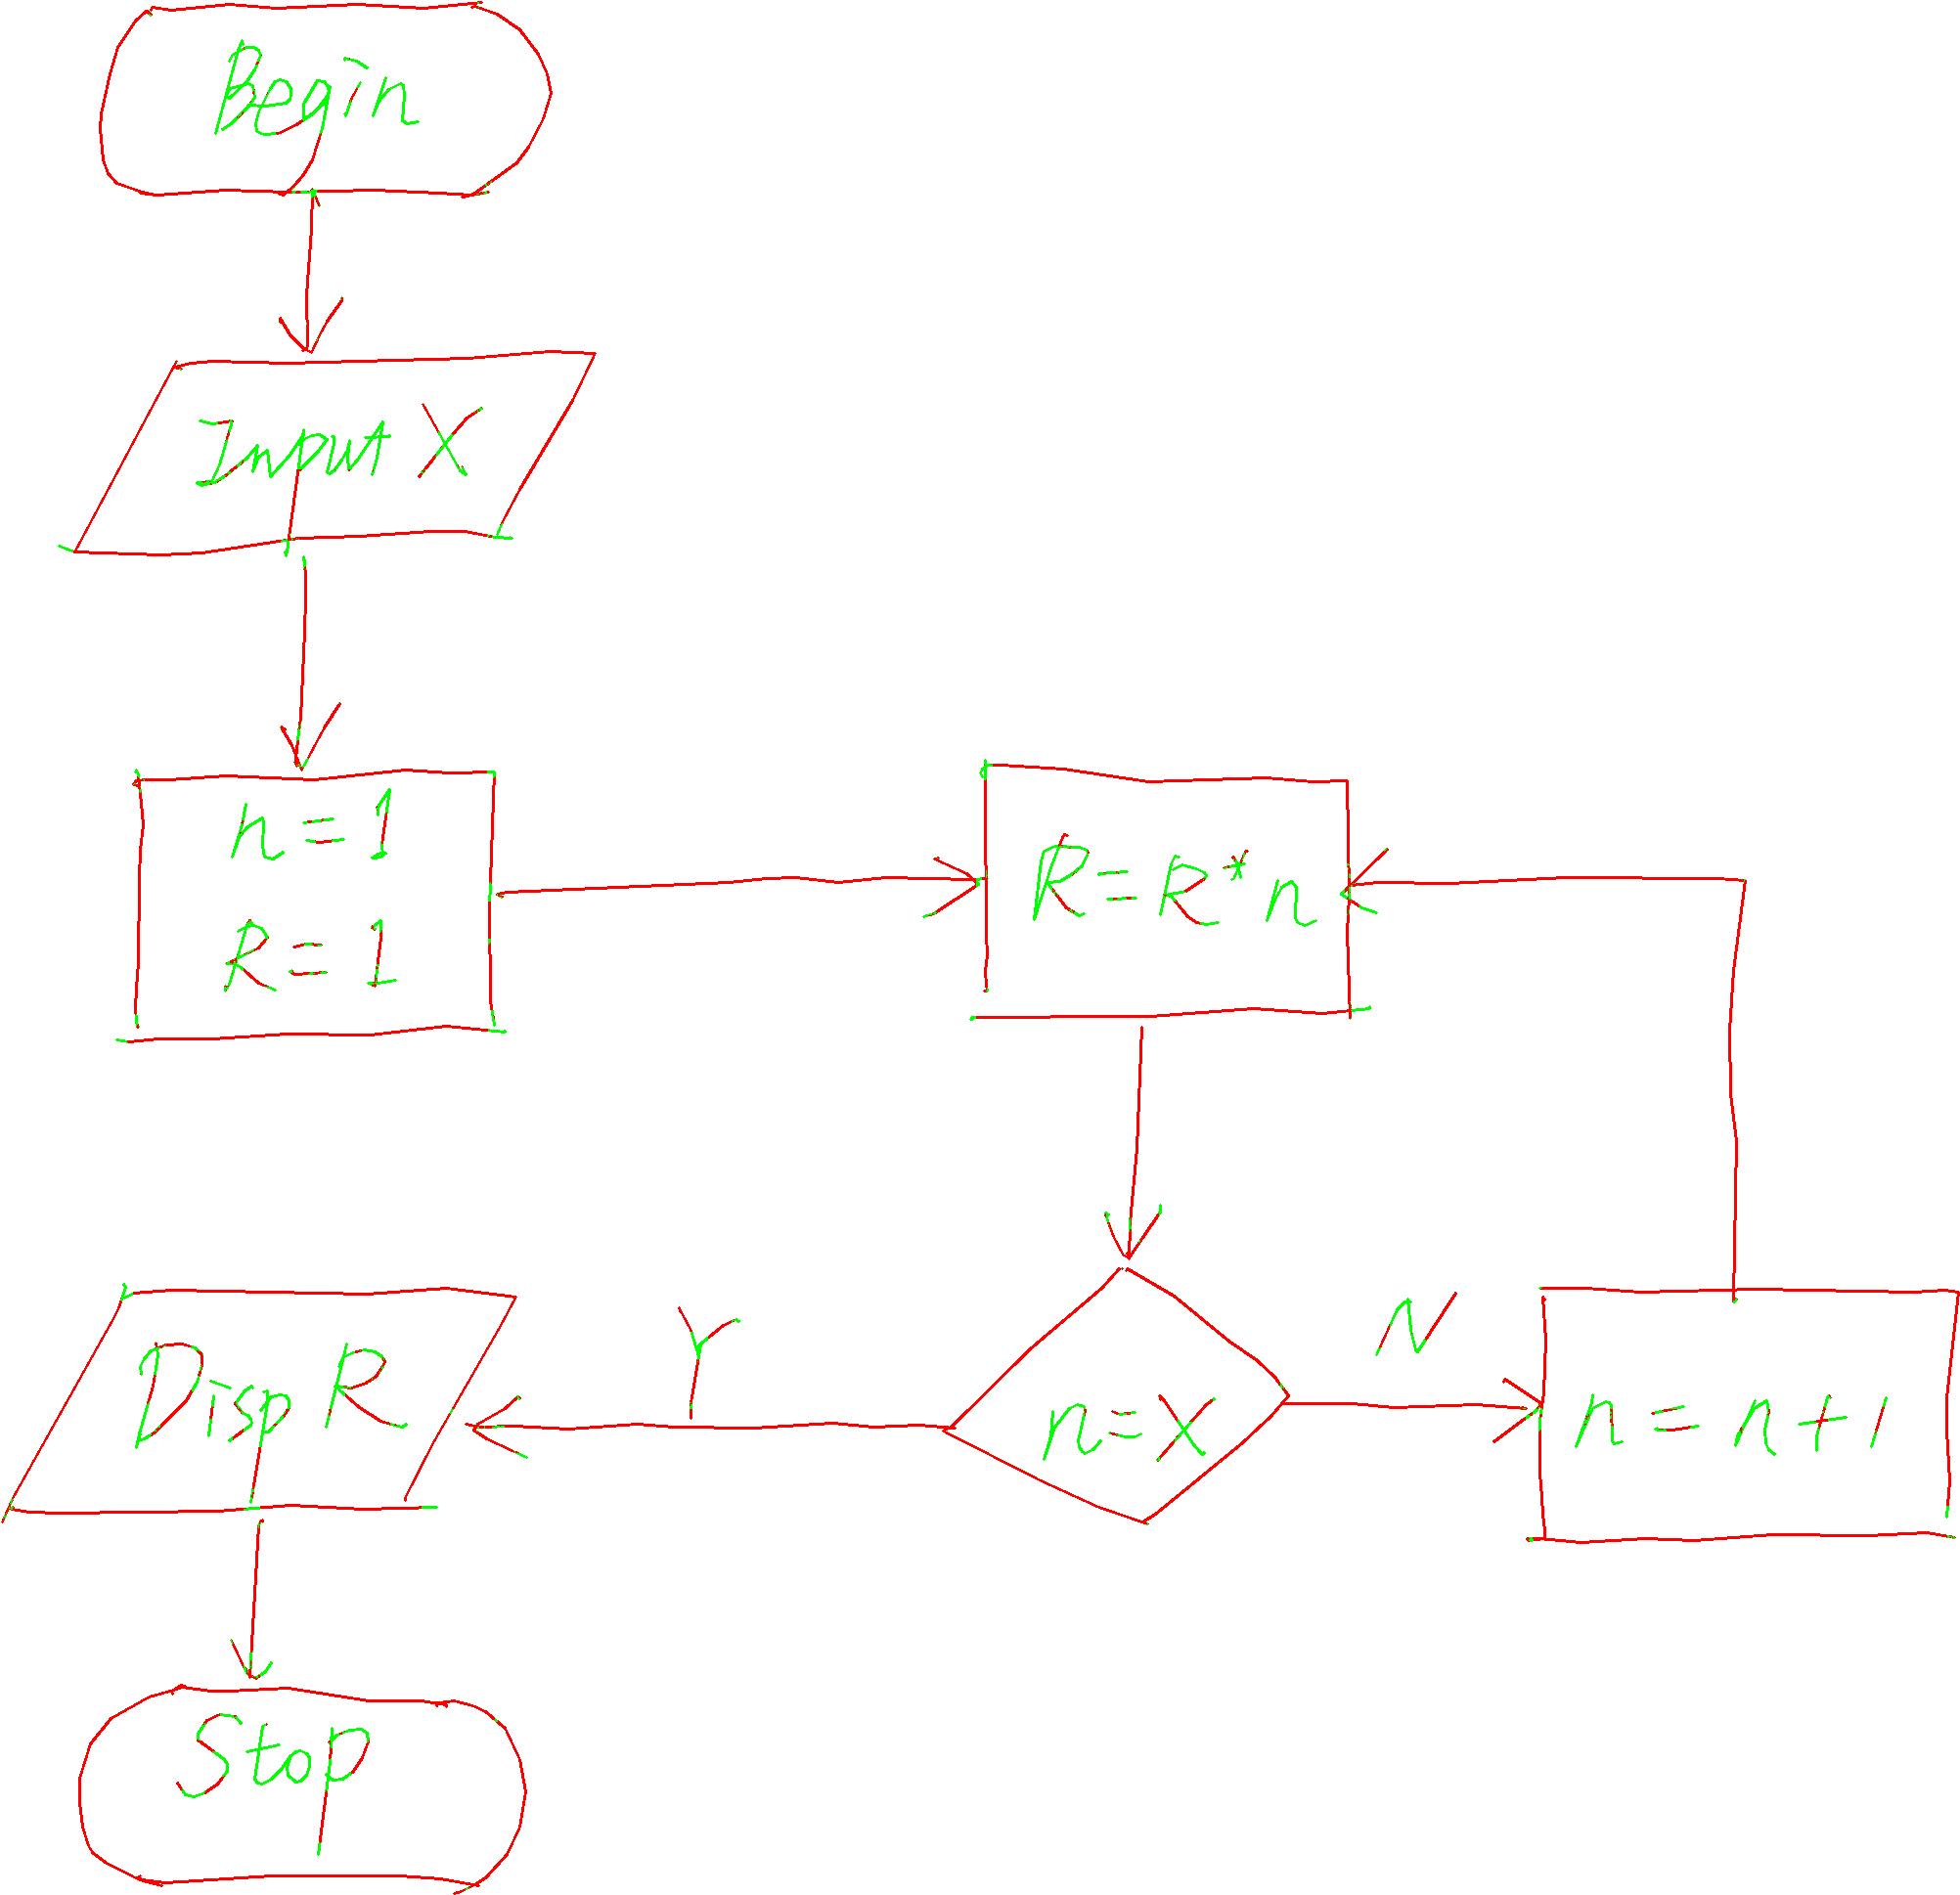 Begin
Input X
n = 1
R = 1
R = R * n
n = X
Y
N
n = n + 1
Disp R
Stop